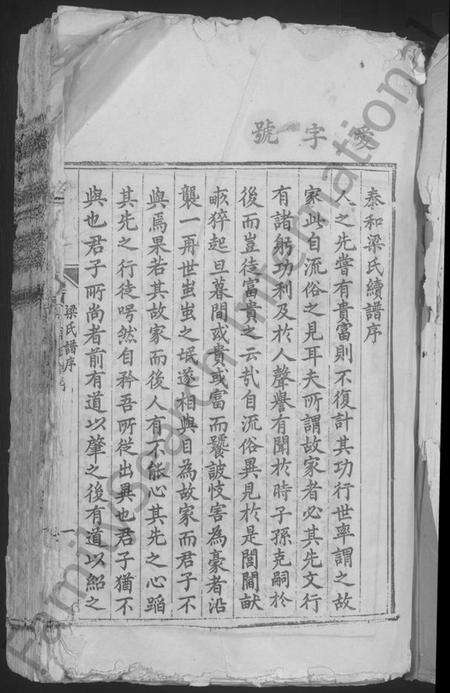 字號
泰和梁氏續譜序
人之先嘗有貴富則不復計其功行世率謂之故
家此自流俗之見耳夫所謂故家者必其先文行
有諸躬功利及於人聲譽有聞於時子孫克嗣於
後而豈待富貴之云哉自流俗異見於是閭閻畎
畝猝起旦暮間或貴或富而饕詖忮害為豪者沿
襲一再世蚩蚩之氓遂相與目為故家而君子不
與焉果若其故家而後人有不能心其先之心蹈
其先之行徒哼然自矜吾所從出異也君子猶不
與也君子所尚者前有道以肇之後有道以紹之
梁氏譜序
一
FamilySearch International